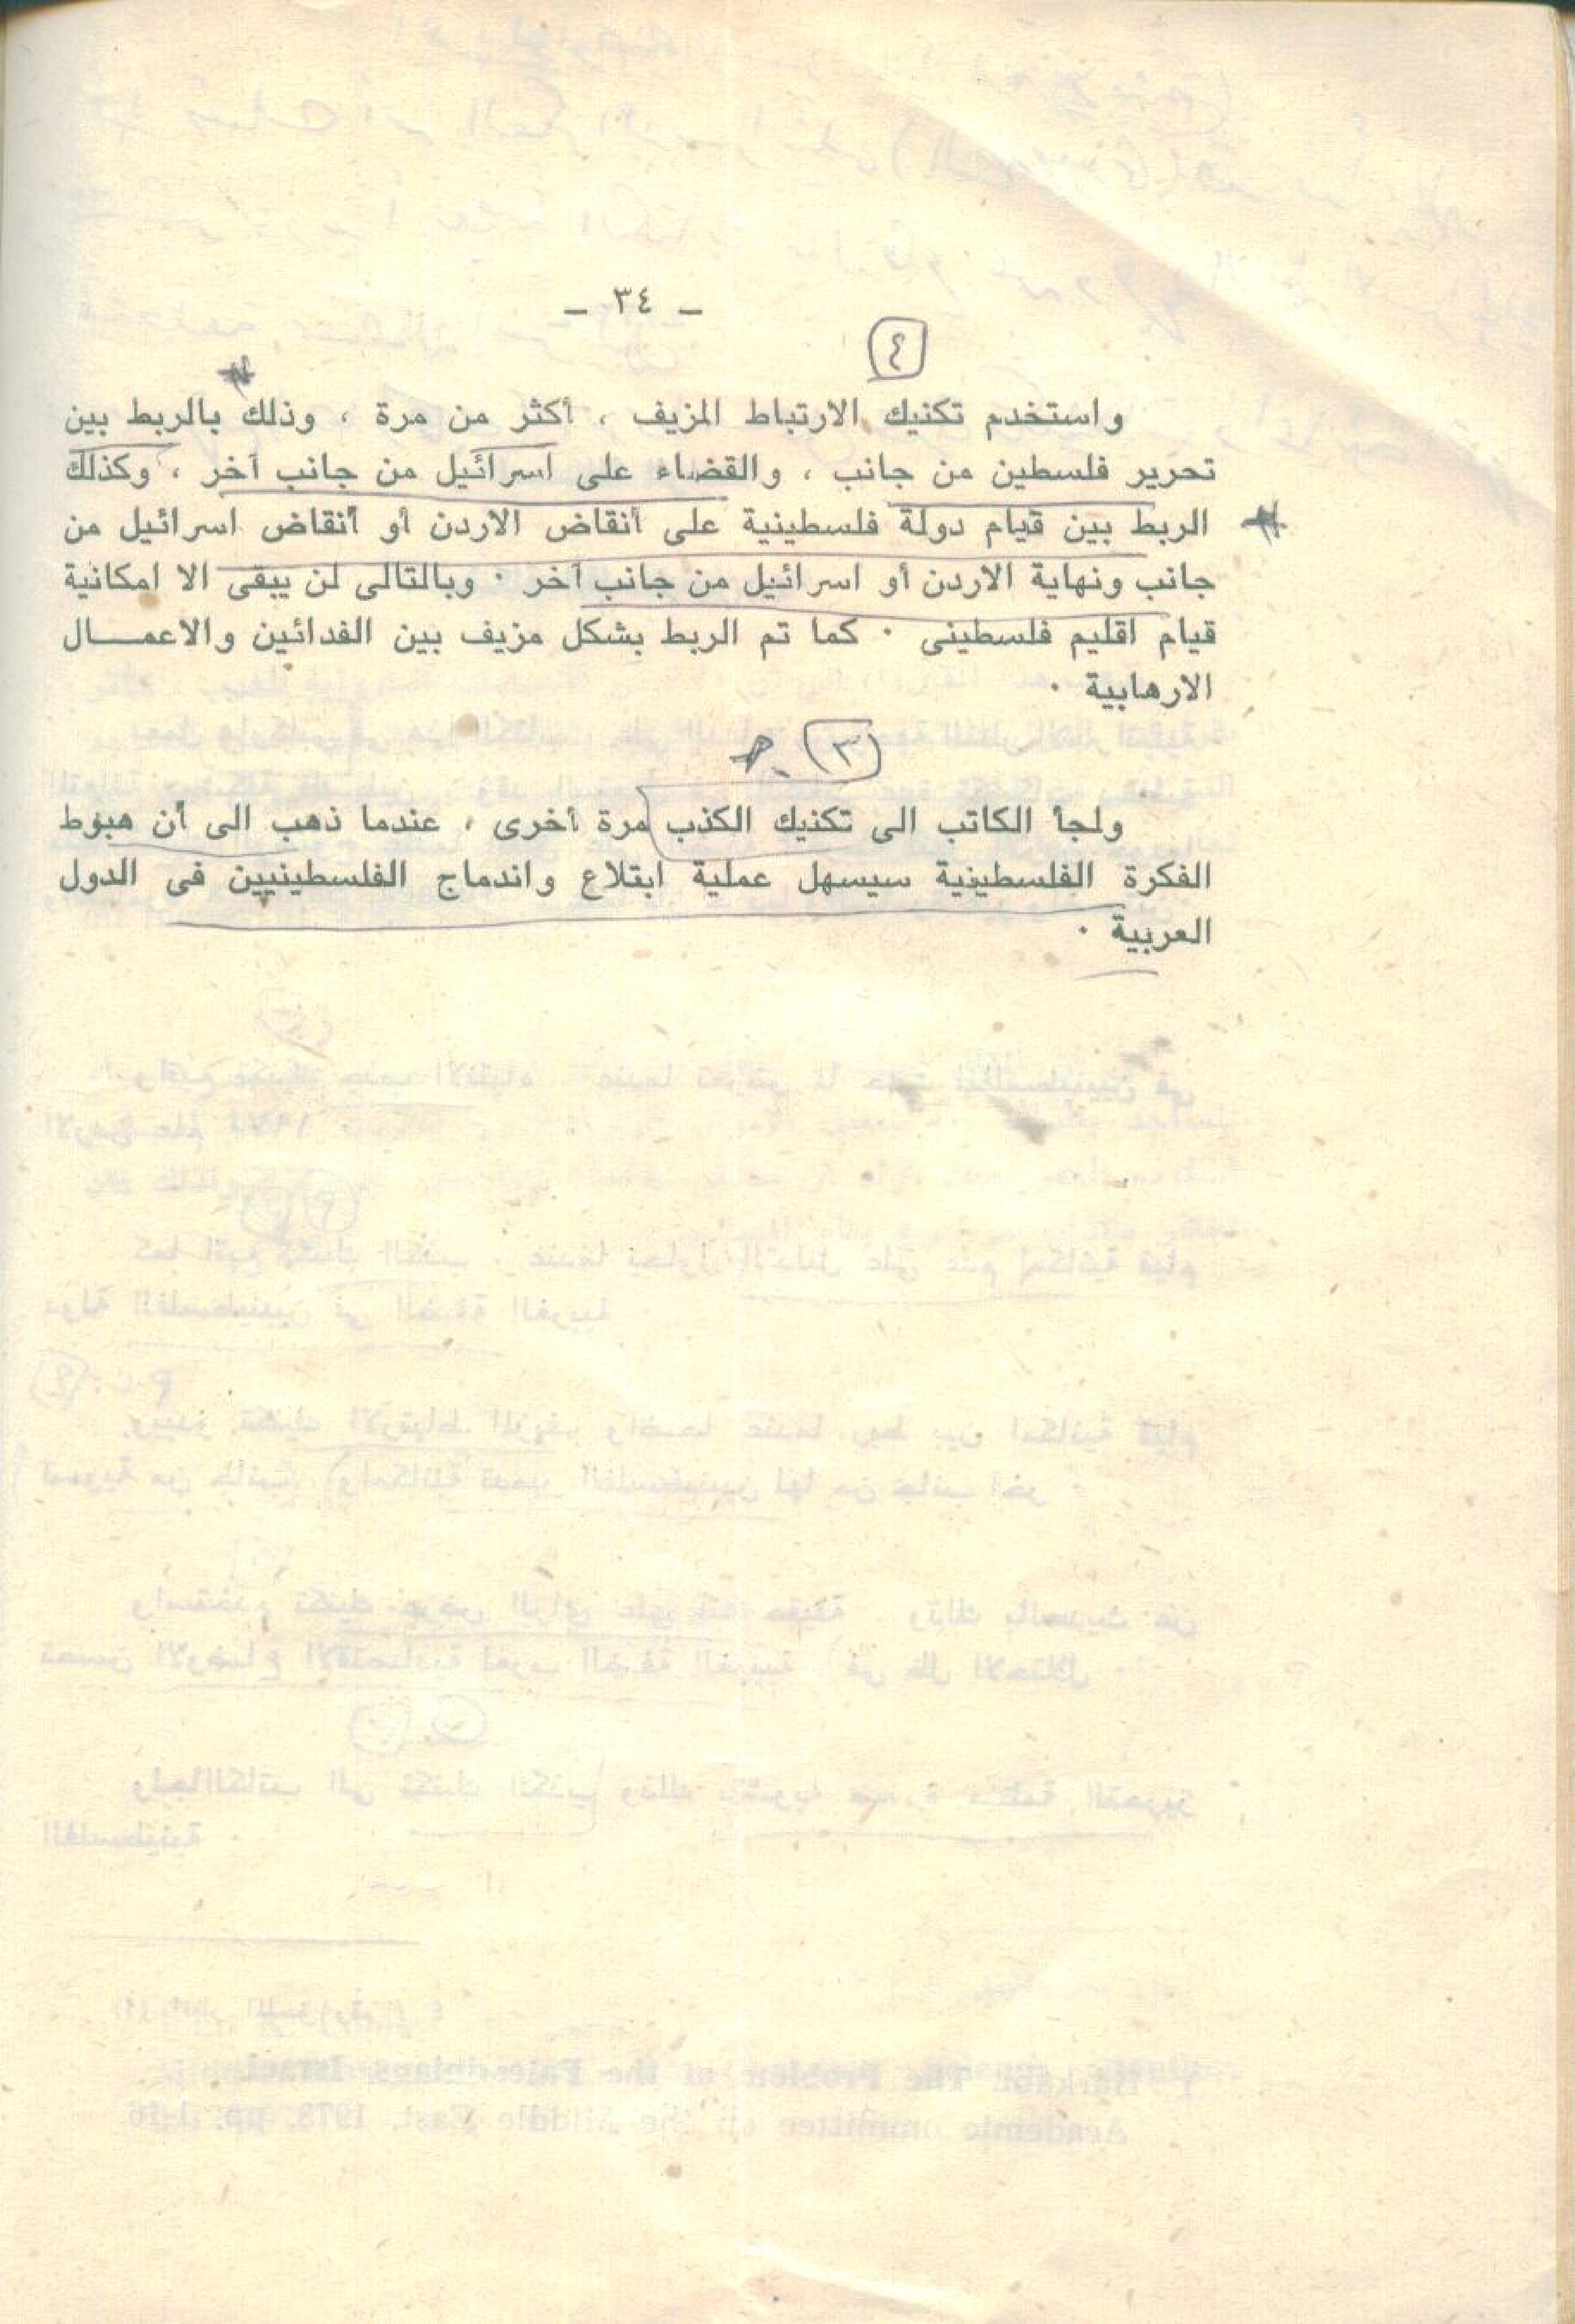 — ٣٤ —
٤
واستخدم تكنيك الارتباط المزيف ، أكثر من مرة ، وذلك بالربط بين
تحرير فلسطين من جانب ، والقضاء على اسرائيل من جانب آخر ، وكذلك
الربط بين قيام دولة فلسطينية على أنقاض الاردن أو أنقاض اسرائيل من
جانب ونهاية الاردن أو اسرائيل من جانب آخر ٠ وبالتالى لن يبقى الا امكانية
قيام اقليم فلسطينى ٠ كما تم الربط بشكل مزيف بين الفدائين والاعمــال
الارهابية ٠
(٣)
ولجأ الكاتب الى تكنيك الكذب مرة أخرى ، عندما ذهب الى أن هبوط
الفكرة الفلسطينية سيسهل عملية ابتلاع واندماج الفلسطينيين فى الدول
العربية ٠